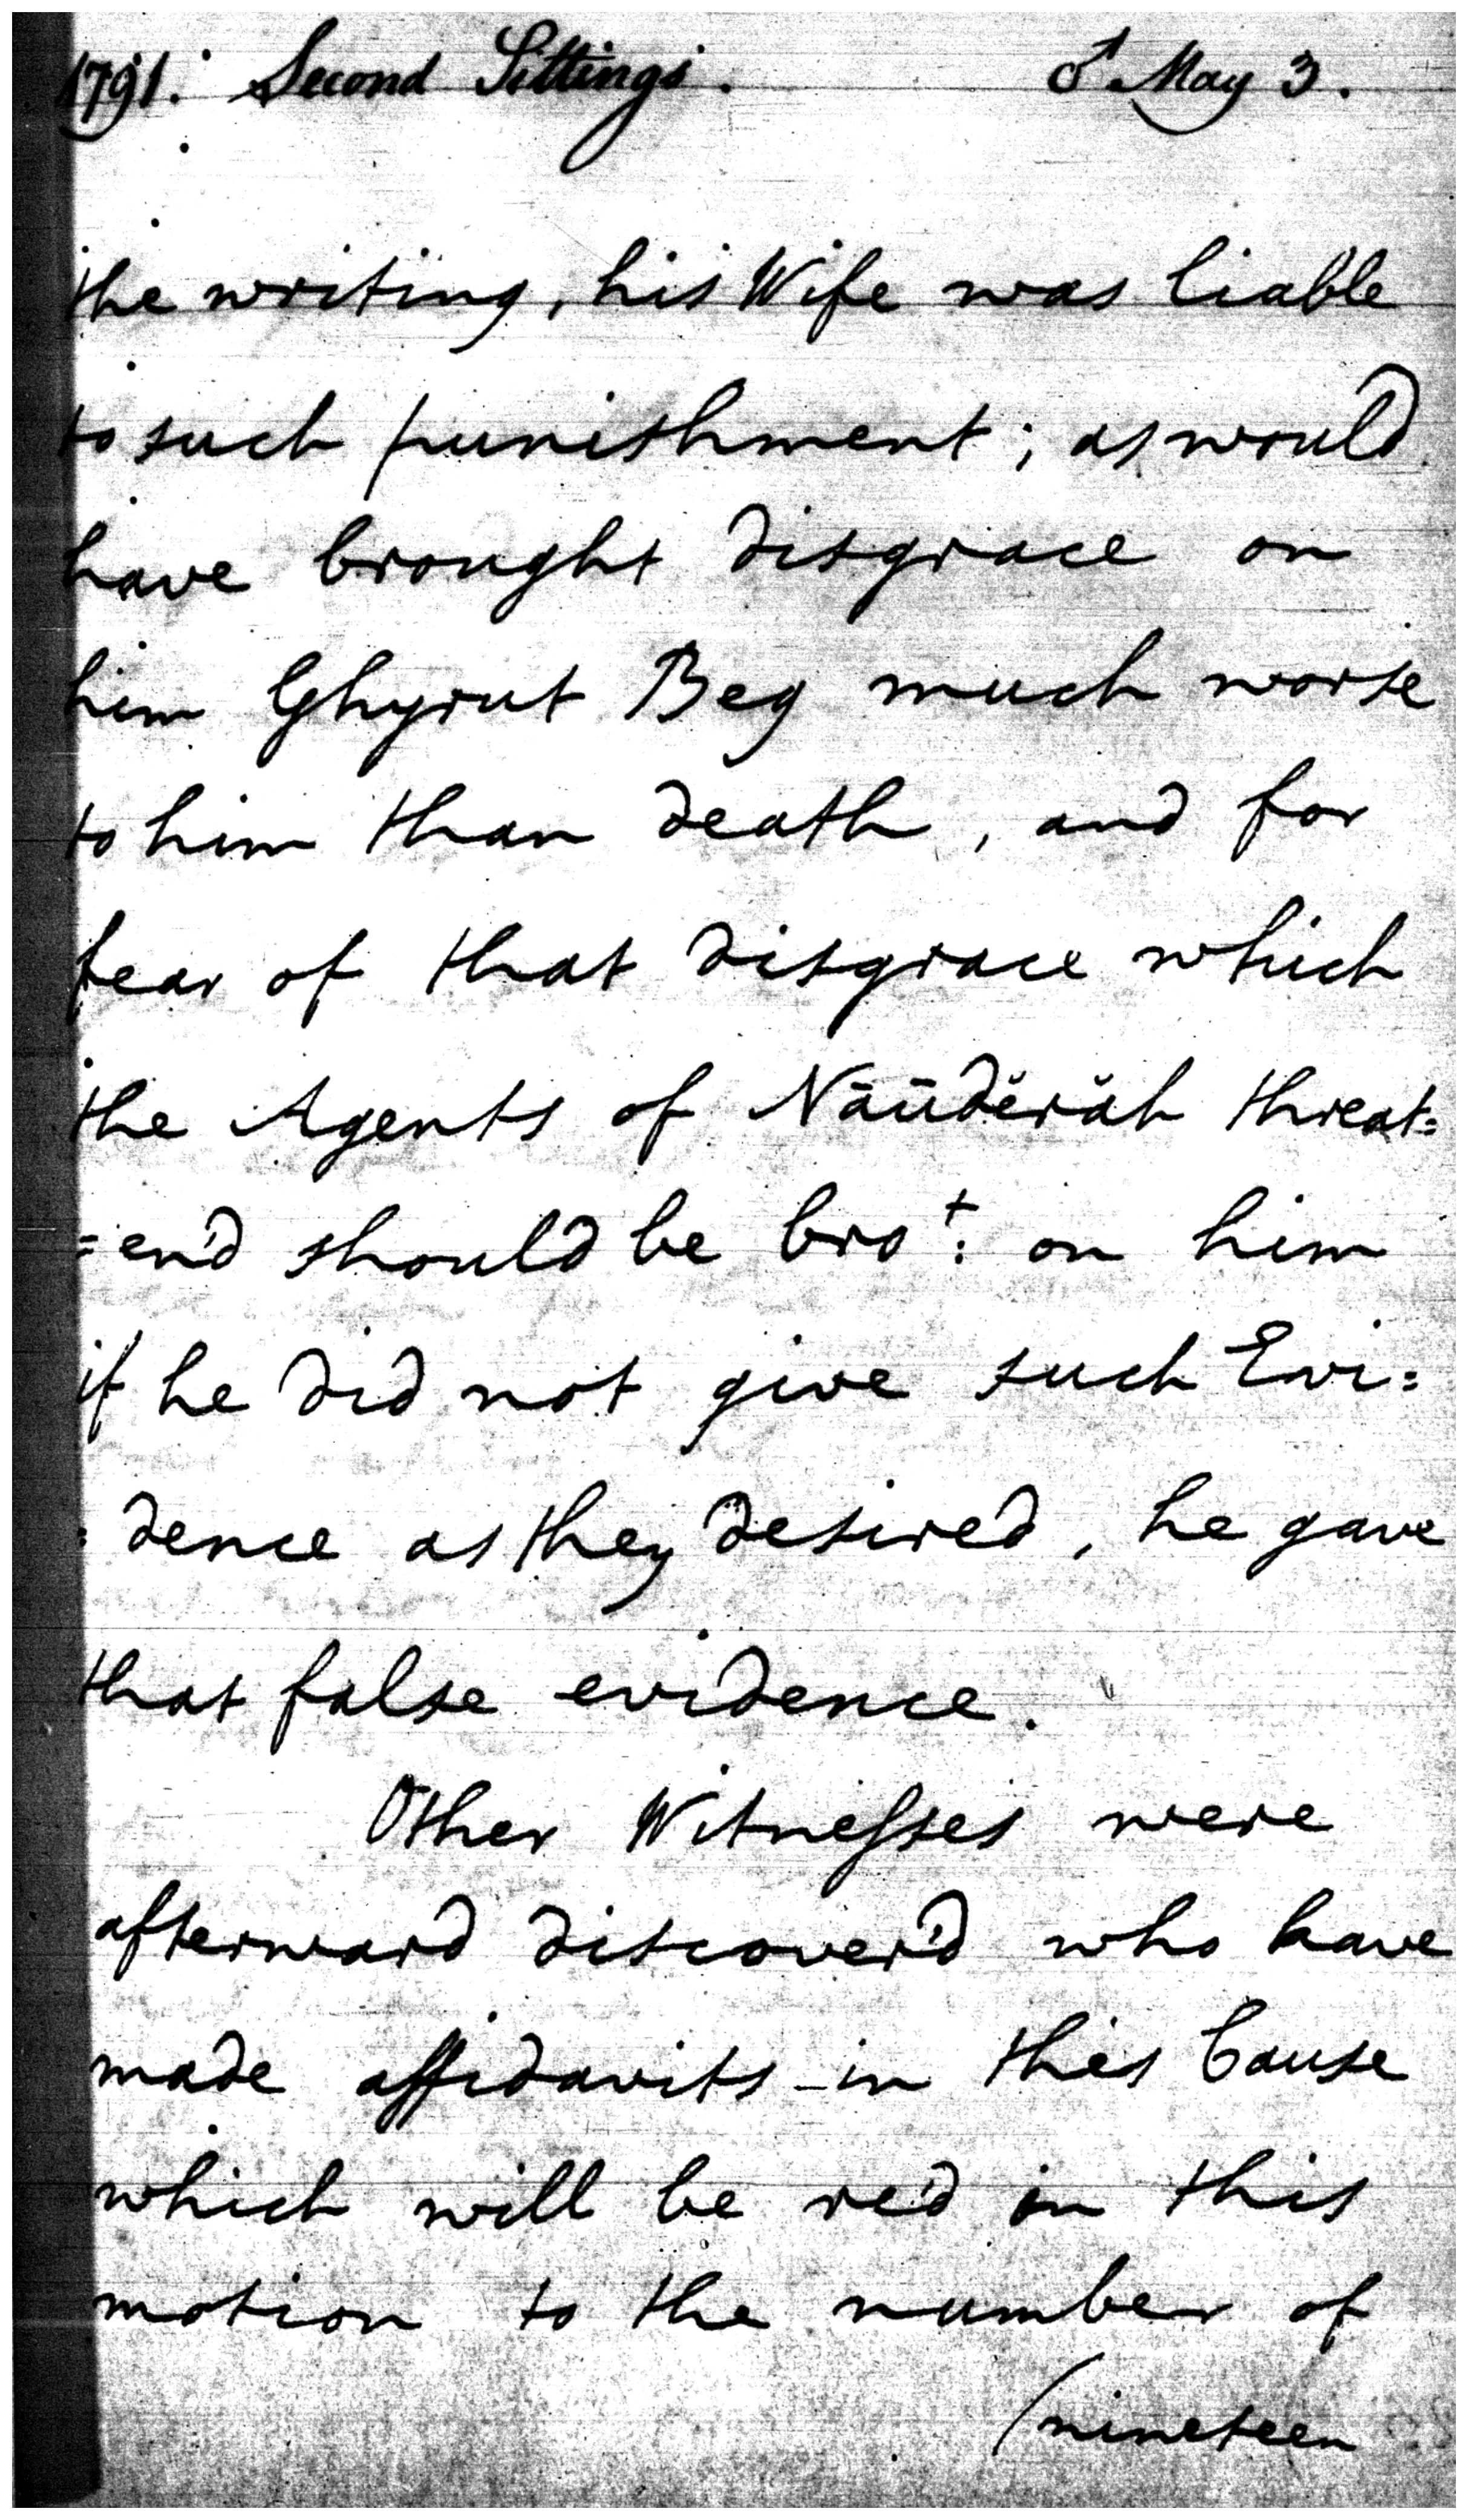 1791. Second Sittings. ♂ May 3.
the writing, his Wife was liable
to such punishment; as would
have brought disgrace on
him Ghyrut Beg much worse
to him than death, and for
fear of that disgrace which
the Agents of Nāūdĕrăh threat=
=en'd should be bro^t: on him
if he did not give such Evi=
=dence as they desired, he gave
that false evidence.
Other Witneſses were
afterward discover'd who have
made affidavits in this Cause
which will be re'd in this
motion to the number of
(nineteen